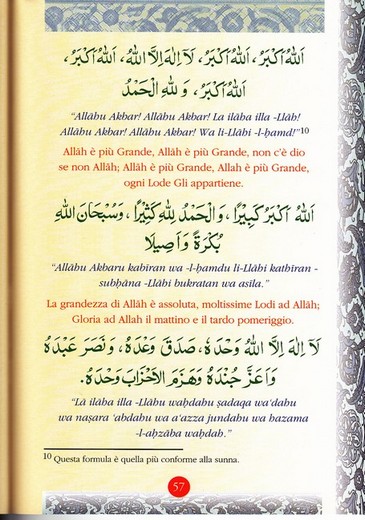 اَللهُ اَكْبَرُ، اَللهُ اَكْبَرُ، لَآ اِلٰهَ اِلَّا اللهُ، اَللهُ اَكْبَرُ،
اَللهُ اَكْبَرُ، وَ لِلّٰهِ الْحَمْدُ
“Allāhu Akbar! Allāhu Akbar! La ilāha illa -Llāh!
Allāhu Akbar! Allāhu Akbar! Wa li-Llāhi -l-ḥamd!”10
Allāh è più Grande, Allāh è più Grande, non c'è dio
se non Allāh; Allāh è più Grande, Allah è più Grande,
ogni Lode Gli appartiene.
اَللهُ اَكْبَرُ كَبِيْرًا، وَالْحَمْدُ لِلّٰهِ كَثِيْرًا، وَسُبْحَانَ اللهِ
بُكْرَةً وَ اَصِيلًا
“Allāhu Akbaru kabīran wa -l-ḥamdu li-Llāhi kathīran -
subḥāna -Llāhi bukratan wa asila.”
La grandezza di Allāh è assoluta, moltissime Lodi ad Allāh;
Gloria ad Allah il mattino e il tardo pomeriggio.
لَآ اِلٰهَ اِلَّا اللهُ وَحْدَهُ، صَدَقَ وَعْدَهُ، وَنَصَرَ عَبْدَهُ
وَاَعَزَّ جُنْدَهُ وَهَزَمَ الْاَحْزَابَ وَحْدَهُ.
“Lā ilāha illa -Llāhu waḥdahu ṣadaqa wa‘dahu
wa naṣara ‘abdahu wa a‘azza jundahu wa hazama
-l-aḥzāba waḥdah.”
10 Questa formula è quella più conforme alla sunna.
57